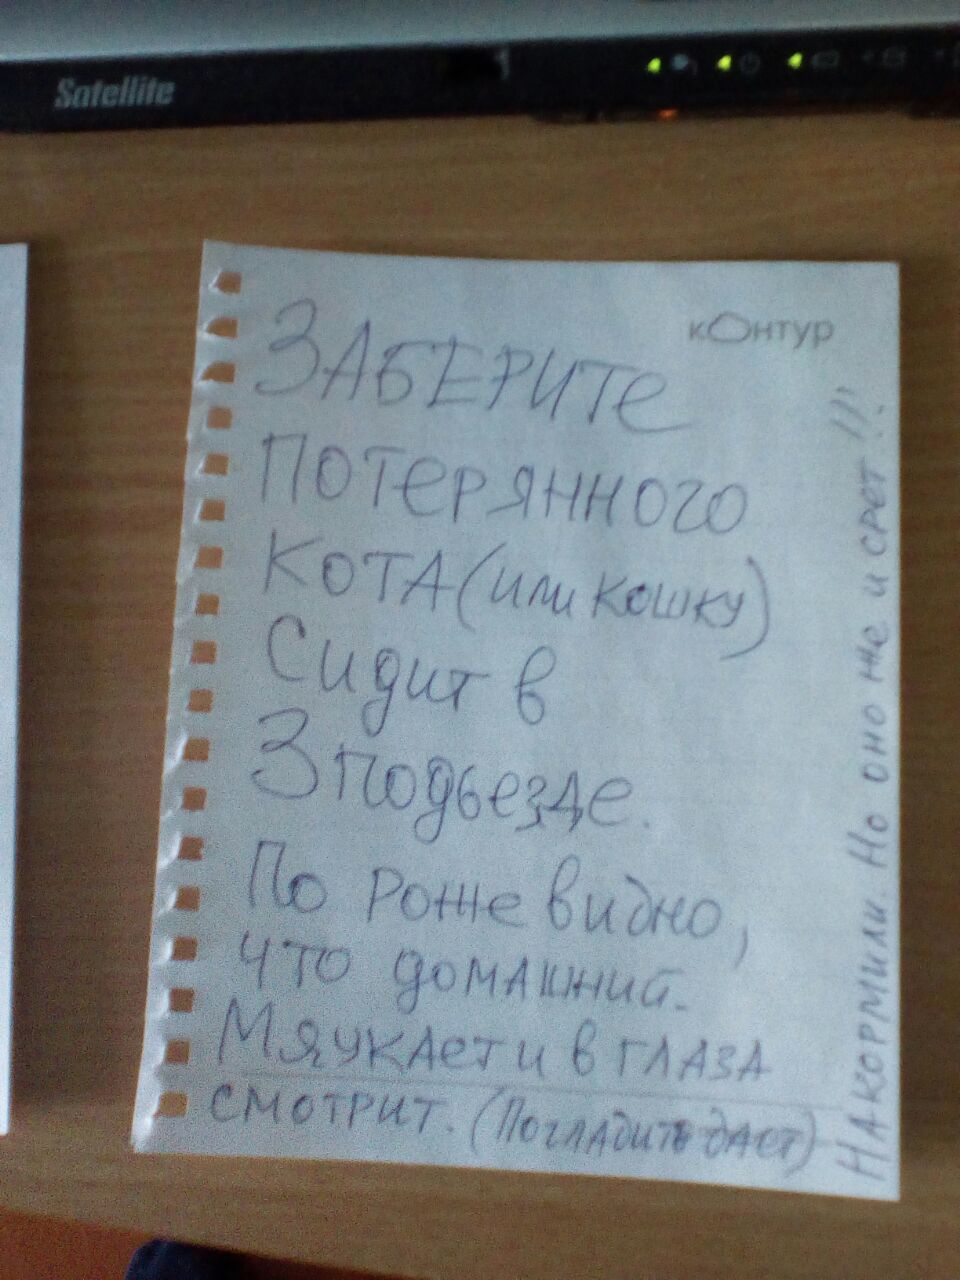 Satellite
кОнтур
ЗАБЕРИТЕ
ПОТЕРЯННОГО
КОТА (или кошку)
Сидит в
3 подьезде.
По роже видно,
что домашний.
Мяукает и в глаза
смотрит. (Погладить дает)
Накормили. Но оно же и срет!!!